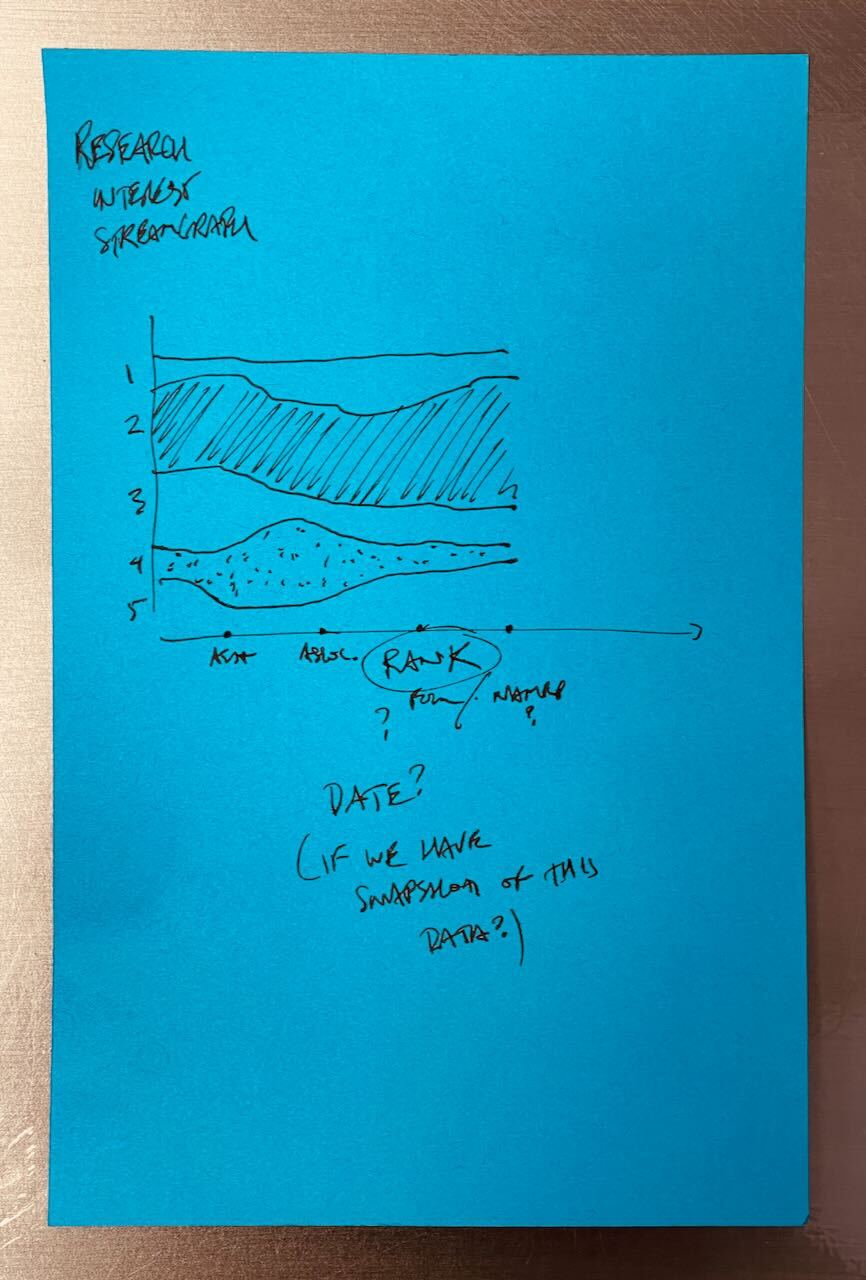 RESEARCH
INTEREST
STREAMGRAPH
1
2
3
4
5
ASST ASSOC. RANK
? FULL/. NAMED
?
DATE?
(IF WE HAVE
SNAPSHOT OF THIS
DATA?)